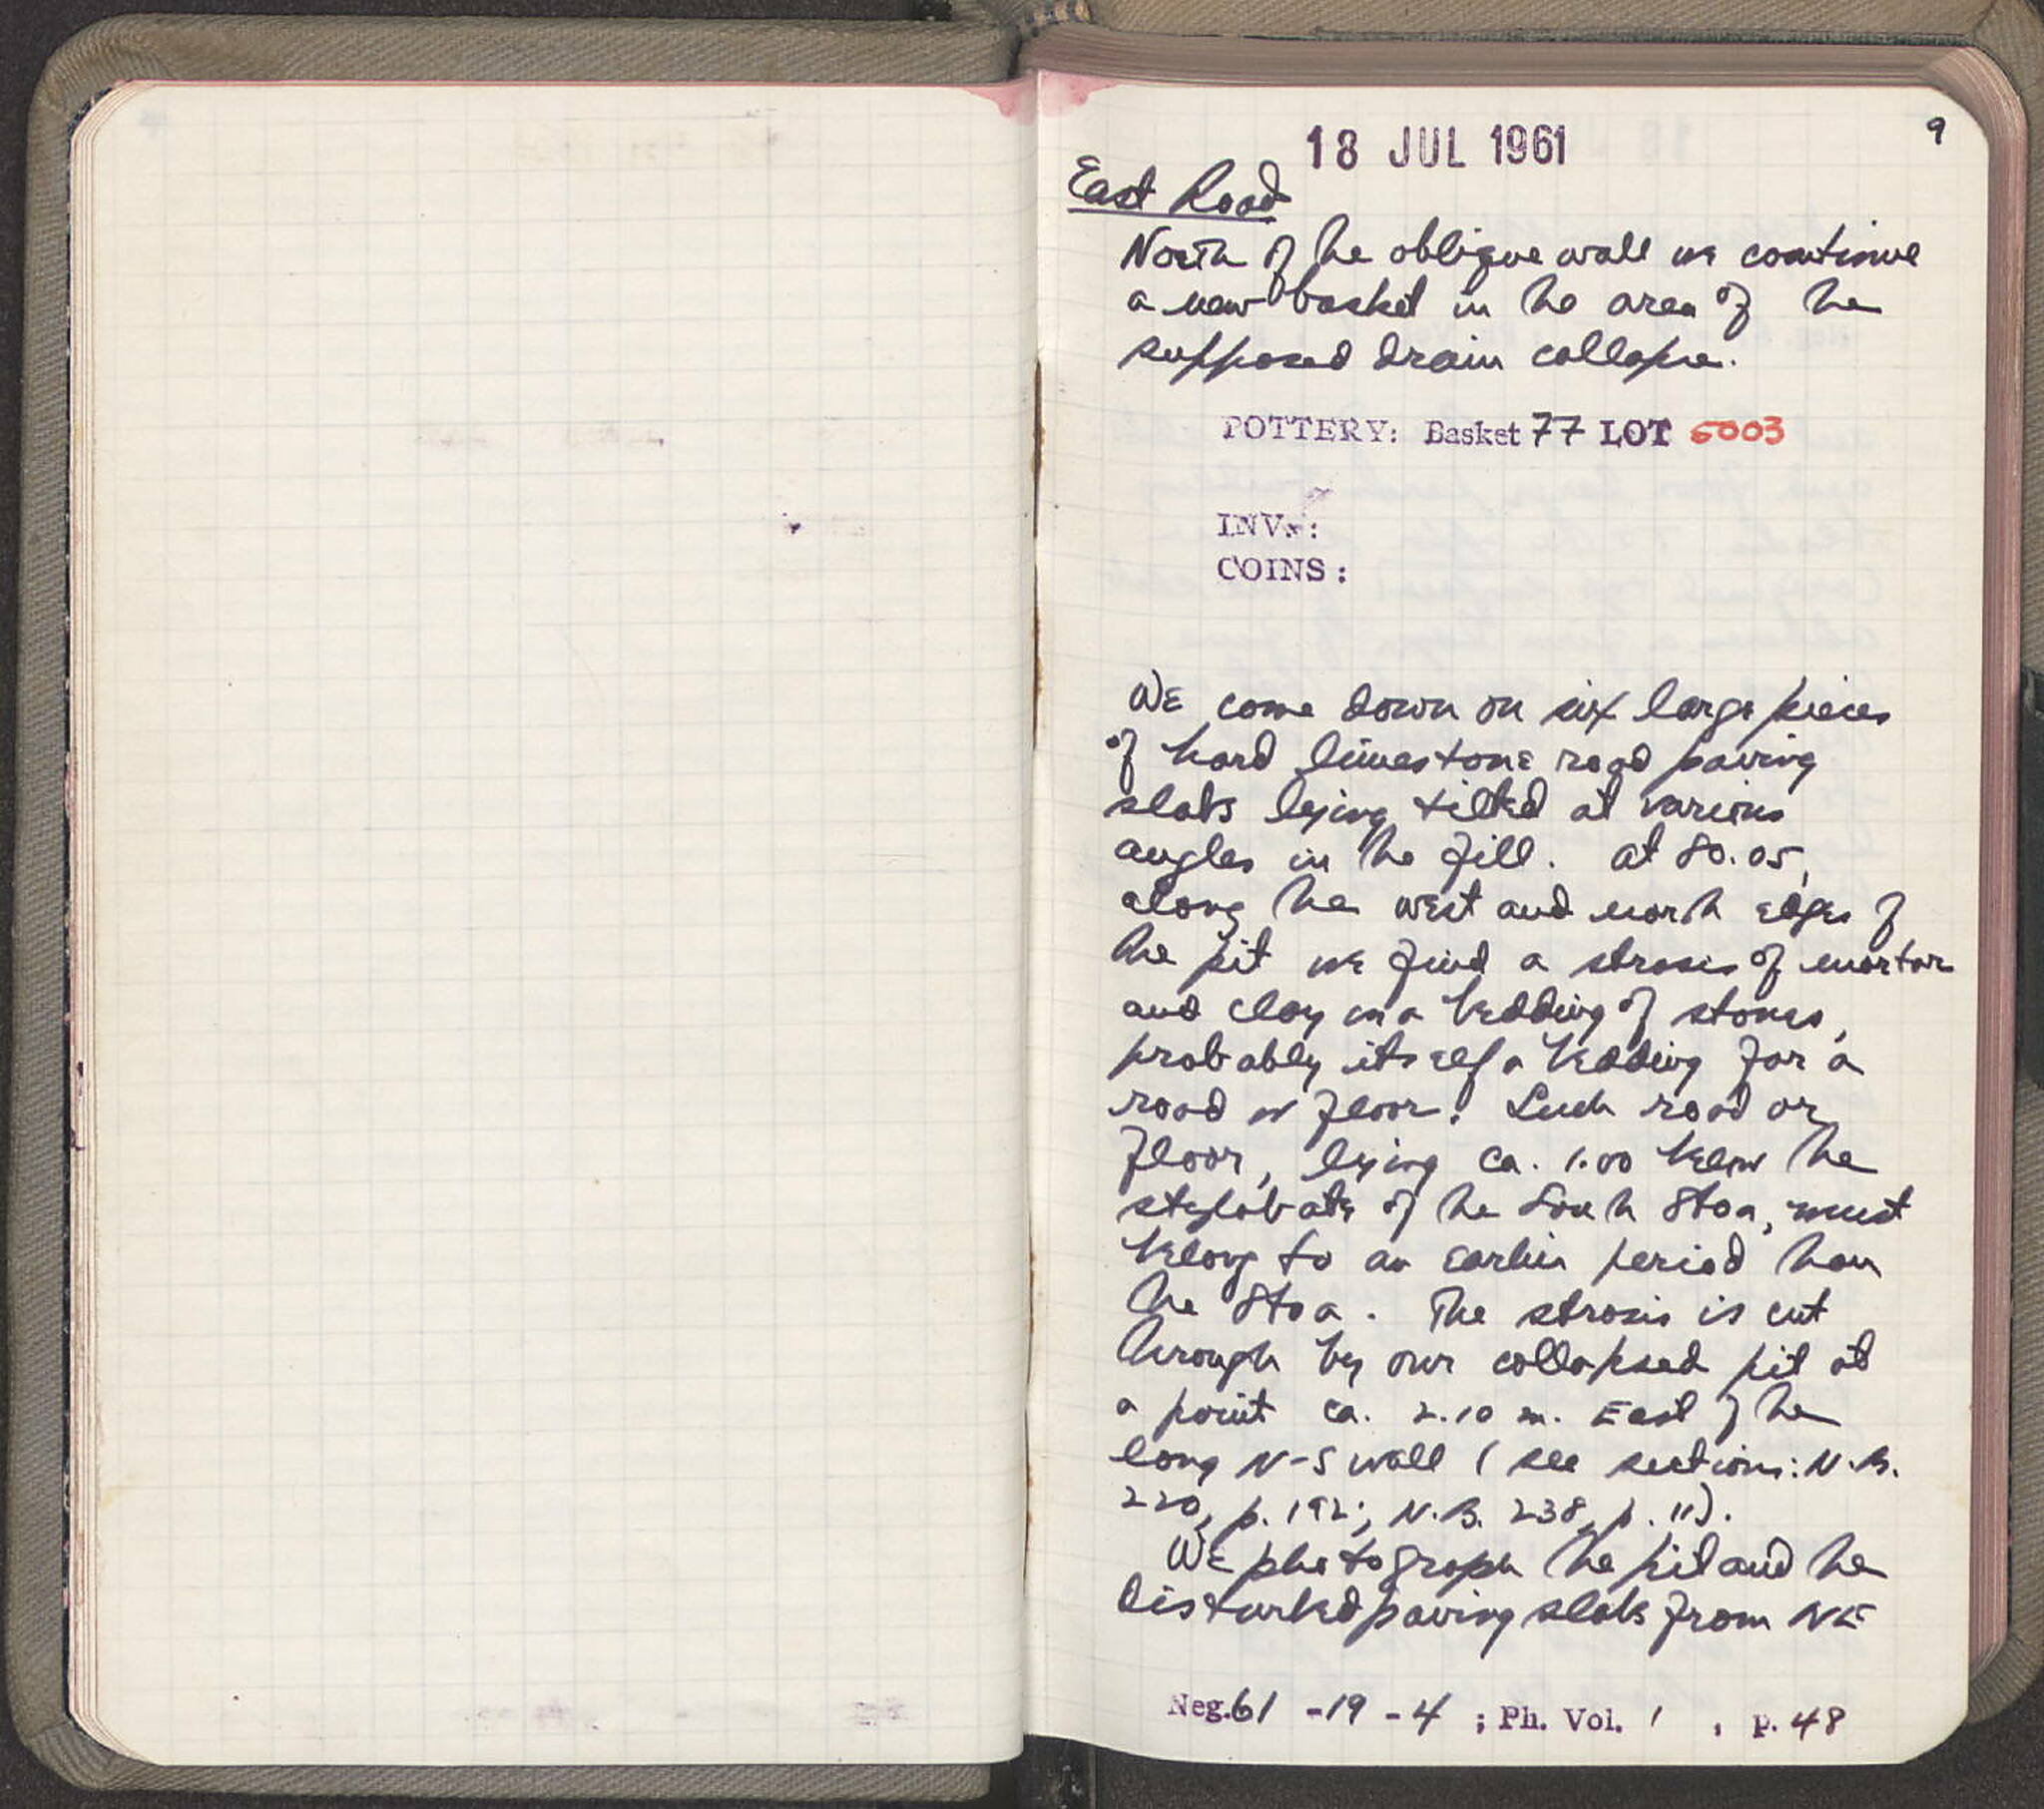 9
18 JUL 1961
East Road
North of the oblique wall we continue
a new basket in the area of the
supposed drain collapse.
POTTERY: Basket 77 LOT 5003
INV.:
COINS:
We come down on six large pieces
of hard limestone road paving
slabs lying tilted at various
angles in the fill. At 80.05,
along the west and north edges of
the pit we find a strosis of mortar
and clay on a bedding of stones,
probably itself a bedding for a
road or floor. Such road or
floor, lying ca. 1.00 below the
stylobate of the South Stoa, must
belong to an earlier period than
the Stoa. The strosis is cut
through by our collapsed pit at
a point ca. 2.10 m. East of the
long N-S wall (see sections: N.B.
220, p. 192; N.B. 238, p. 11).
We photograph the pit and the
disturbed paving slabs from NE
Neg. 61 - 19 - 4 ; Ph. Vol. 1 , p. 48